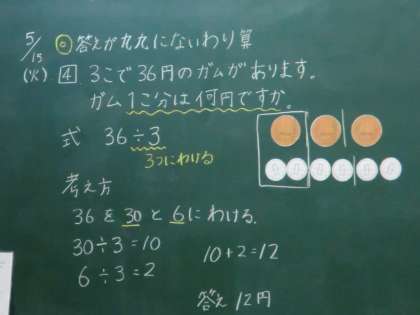 5/15
(火)
◎答えが九九にないわり算
4 3こで36円のガムがあります。
ガム1こ分は何円ですか。
式 36÷3
3つにわける
考え方
36を30と6にわける。
30÷3=10
6÷3=2
10+2=12
答え12円